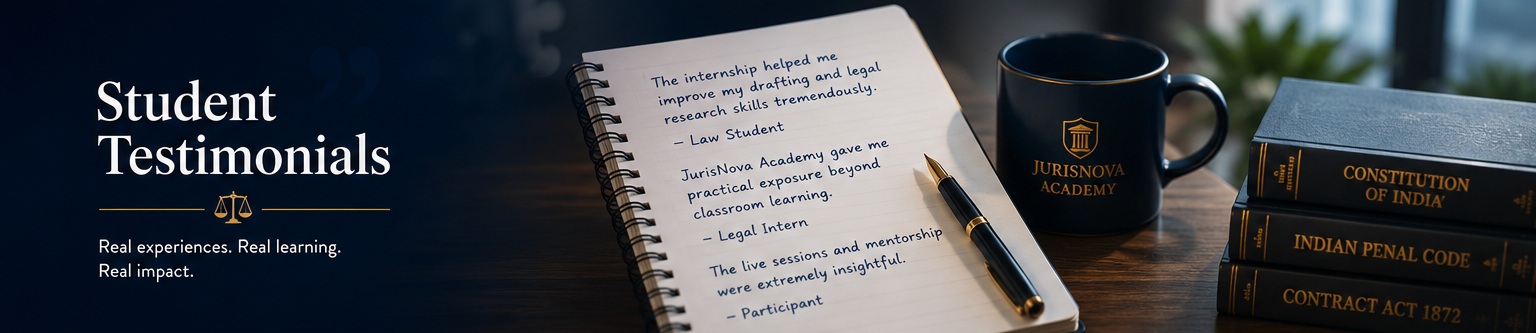 Student
Testimonials
Real experiences. Real learning.
Real impact.
The internship helped me
improve my drafting and legal
research skills tremendously.
– Law Student
JurisNova Academy gave me
practical exposure beyond
classroom learning.
– Legal Intern
The live sessions and mentorship
were extremely insightful.
– Participant
JURISNOVA
ACADEMY
CONSTITUTION
OF INDIA
INDIAN PENAL CODE
CONTRACT ACT 1872